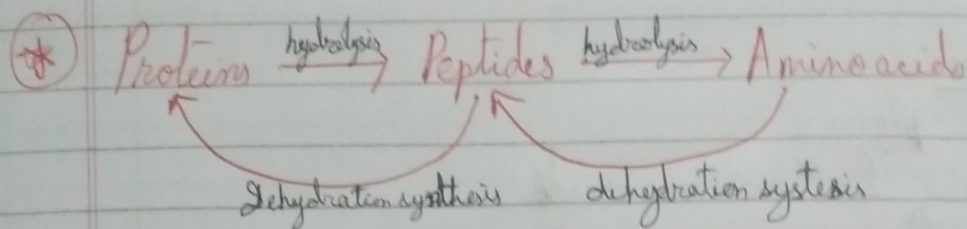 Proteins hydrolysis → Peptides hydrolysis → Amino acids
dehydration synthesis dehydration systesis